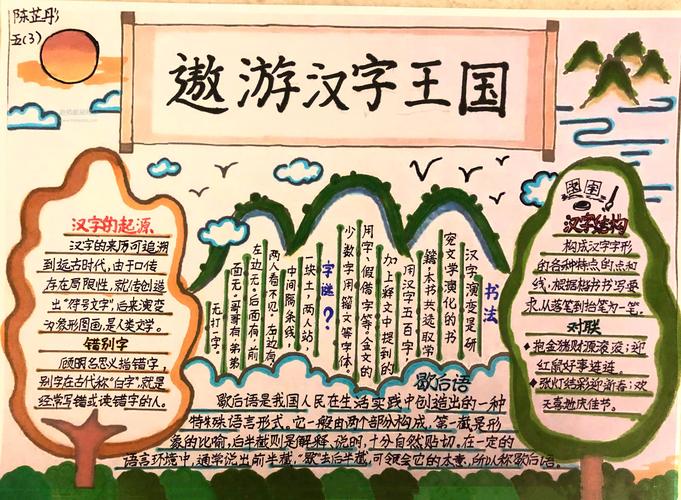 陈芷彤
五(3)
遨游汉字王国
汉字的起源
汉字的来历可追溯
到远古时代,由于口传
存在局限性,就传创造
出"符号文字",后来演变
为象形图画,是人类文学。
错别字
顾名思义指错字,
别字在古代称"白字",就是
经常写错或读错字的人。
书法
汉字演变是研
究文学演化的书
籍,本书共选取常
用汉字五百字,
加上释文中提到的
用字、假借字等。金文的
少数字用籀文等字体,
字谜?
一块土,两人站
中间隔条线,
两人看不见。左边有
左边无,后面有,前
面无。哥哥有,弟弟
无打一字。
汉字结构
构成汉字字形
的各种特点的点和
线,根据楷书书写要
求,从落笔到抬笔为一笔。
对联
抱金猪财源滚滚;迎
红鼠好事连连。
张灯结彩迎新春;欢
天喜地庆佳节。
歇后语
歇后语是我国人民在生活实践中创造出的一种
特殊语言形式。它一般由两个部分构成,第一截是形
象的比喻,后半截则是解释、说明,十分自然贴切。在一定的
语言环境中,通常说出前半截,"歇"去后半截,可领会它的本意,所以称歇后语。